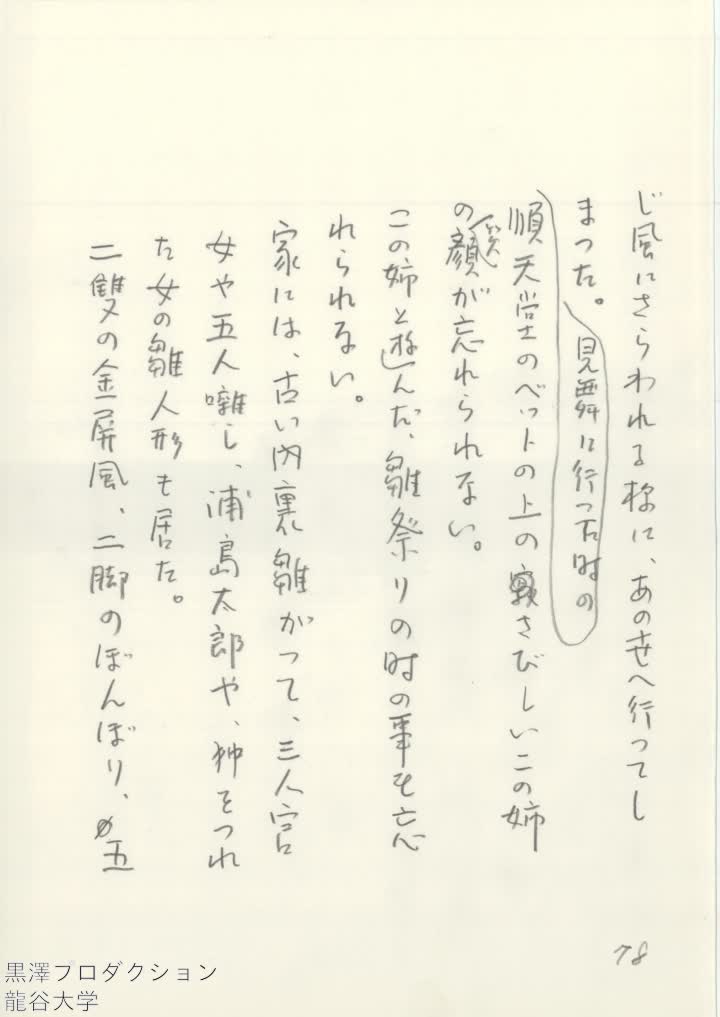 じ風にさらわれる様に、あの世へ行ってし
まった。
見舞に行った時の
順天堂のベットの上のさびしいこの姉
の笑顔が忘れられない。
この姉と遊んだ、雛祭りの時の事も忘
れられない。
家には、古い内裏雛があって、三人官
女や五人囃し、浦島太郎や、狆をつれ
た女の雛人形も居た。
二雙の金屏風、二脚のぼんぼり、五
78
黒澤プロダクション
龍谷大学